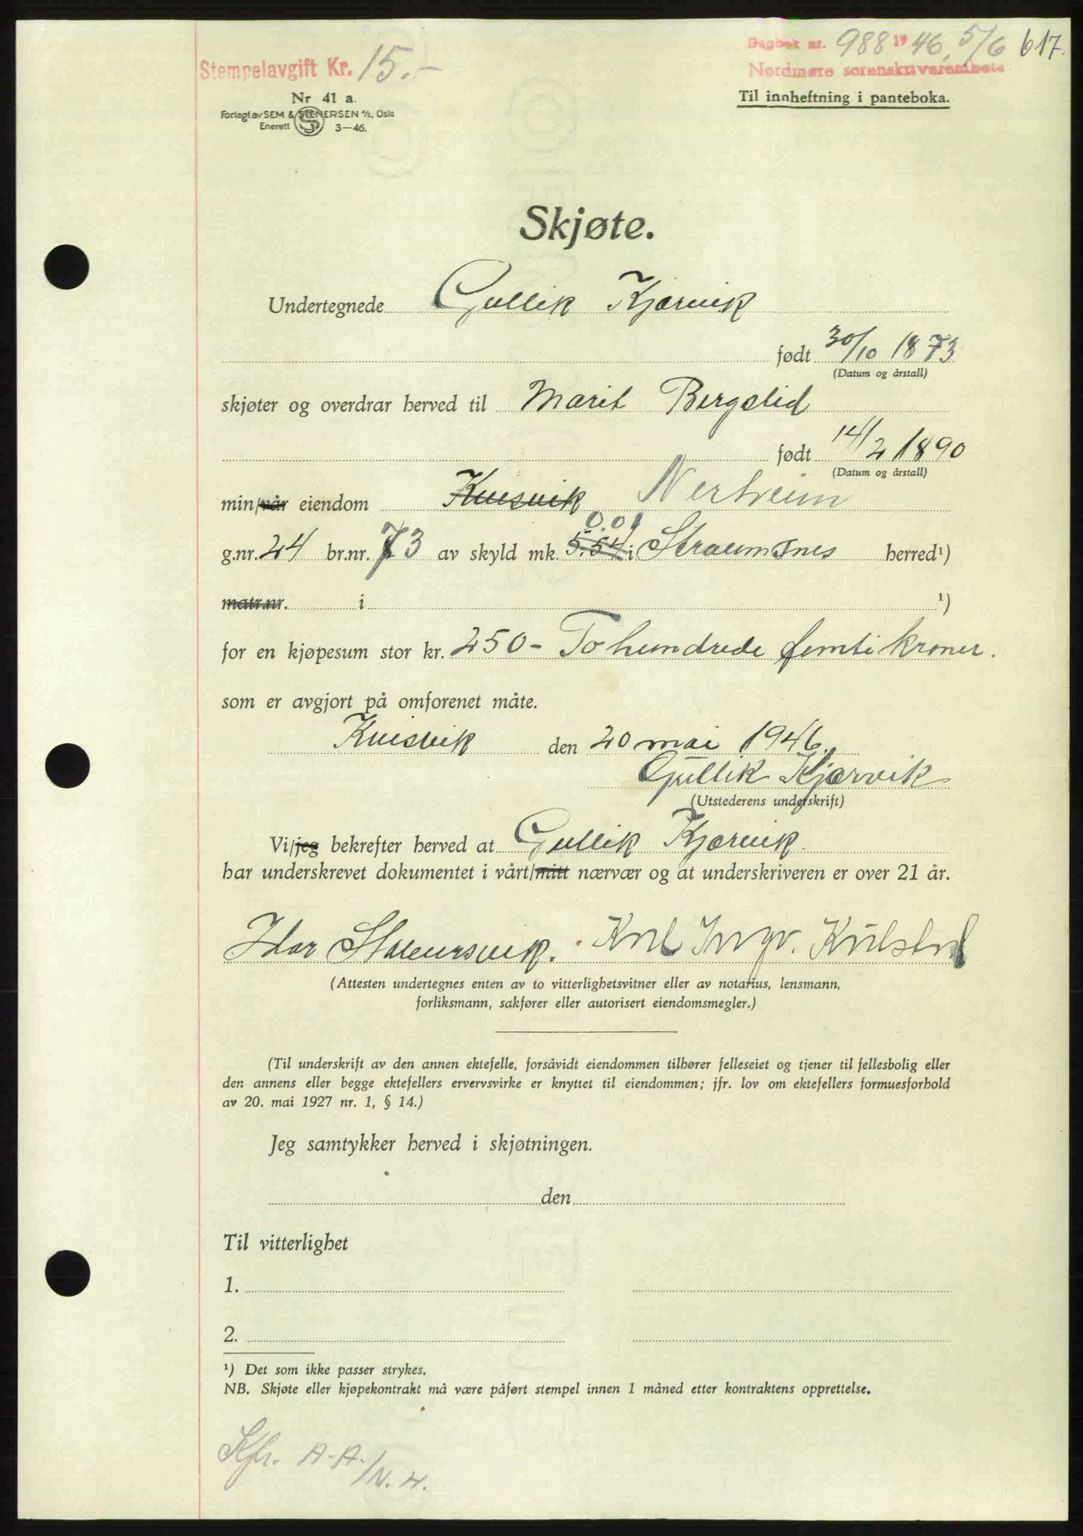 Stempelavgift Kr. 15.-
Dagbok nr. 988 1946, 5/6 617.
Nordmøre sorenskriverembete
Til innheftning i panteboka.
Nr 41 a.
Forlagt av SEM & STENERSEN A/S, Oslo
Enerett 3-46.
Skjøte.
Undertegnede Gullik Kjørvik
født 30/10 1873
(Datum og årstall)
skjøter og overdrar herved til Marit Bergslid
født 14/2 1890
(Datum og årstall)
min/vår eiendom Kvisvik Nerheim
0.01
g.nr. 24 br.nr. 73 av skyld mk. 5.54 i Straumsnes herred¹)
matr.nr. i ¹)
for en kjøpesum stor kr. 250- To hundrede femti kroner.
som er avgjort på omforenet måte.
Kvisvik den 20 mai 1946.
Gullik Kjørvik
(Utstederens underskrift)
Vi/jeg bekrefter herved at Gullik Kjørvik.
har underskrevet dokumentet i vårt/mitt nærvær og at underskriveren er over 21 år.
(Attesten undertegnes enten av to vitterlighetsvitner eller av notarius, lensmann,
forliksmann, sakfører eller autorisert eiendomsmegler.)
(Til underskrift av den annen ektefelle, forsåvidt eiendommen tilhører felleseiet og tjener til fellesbolig eller
den annens eller begge ektefellers ervervsvirke er knyttet til eiendommen; jfr. lov om ektefellers formuesforhold
av 20. mai 1927 nr. 1, § 14.)
Jeg samtykker herved i skjøtningen.
den
Til vitterlighet
1.
2.
¹) Det som ikke passer strykes.
NB. Skjøte eller kjøpekontrakt må være påført stempel innen 1 måned etter kontraktens opprettelse.
Kfr. A.A./N.H.